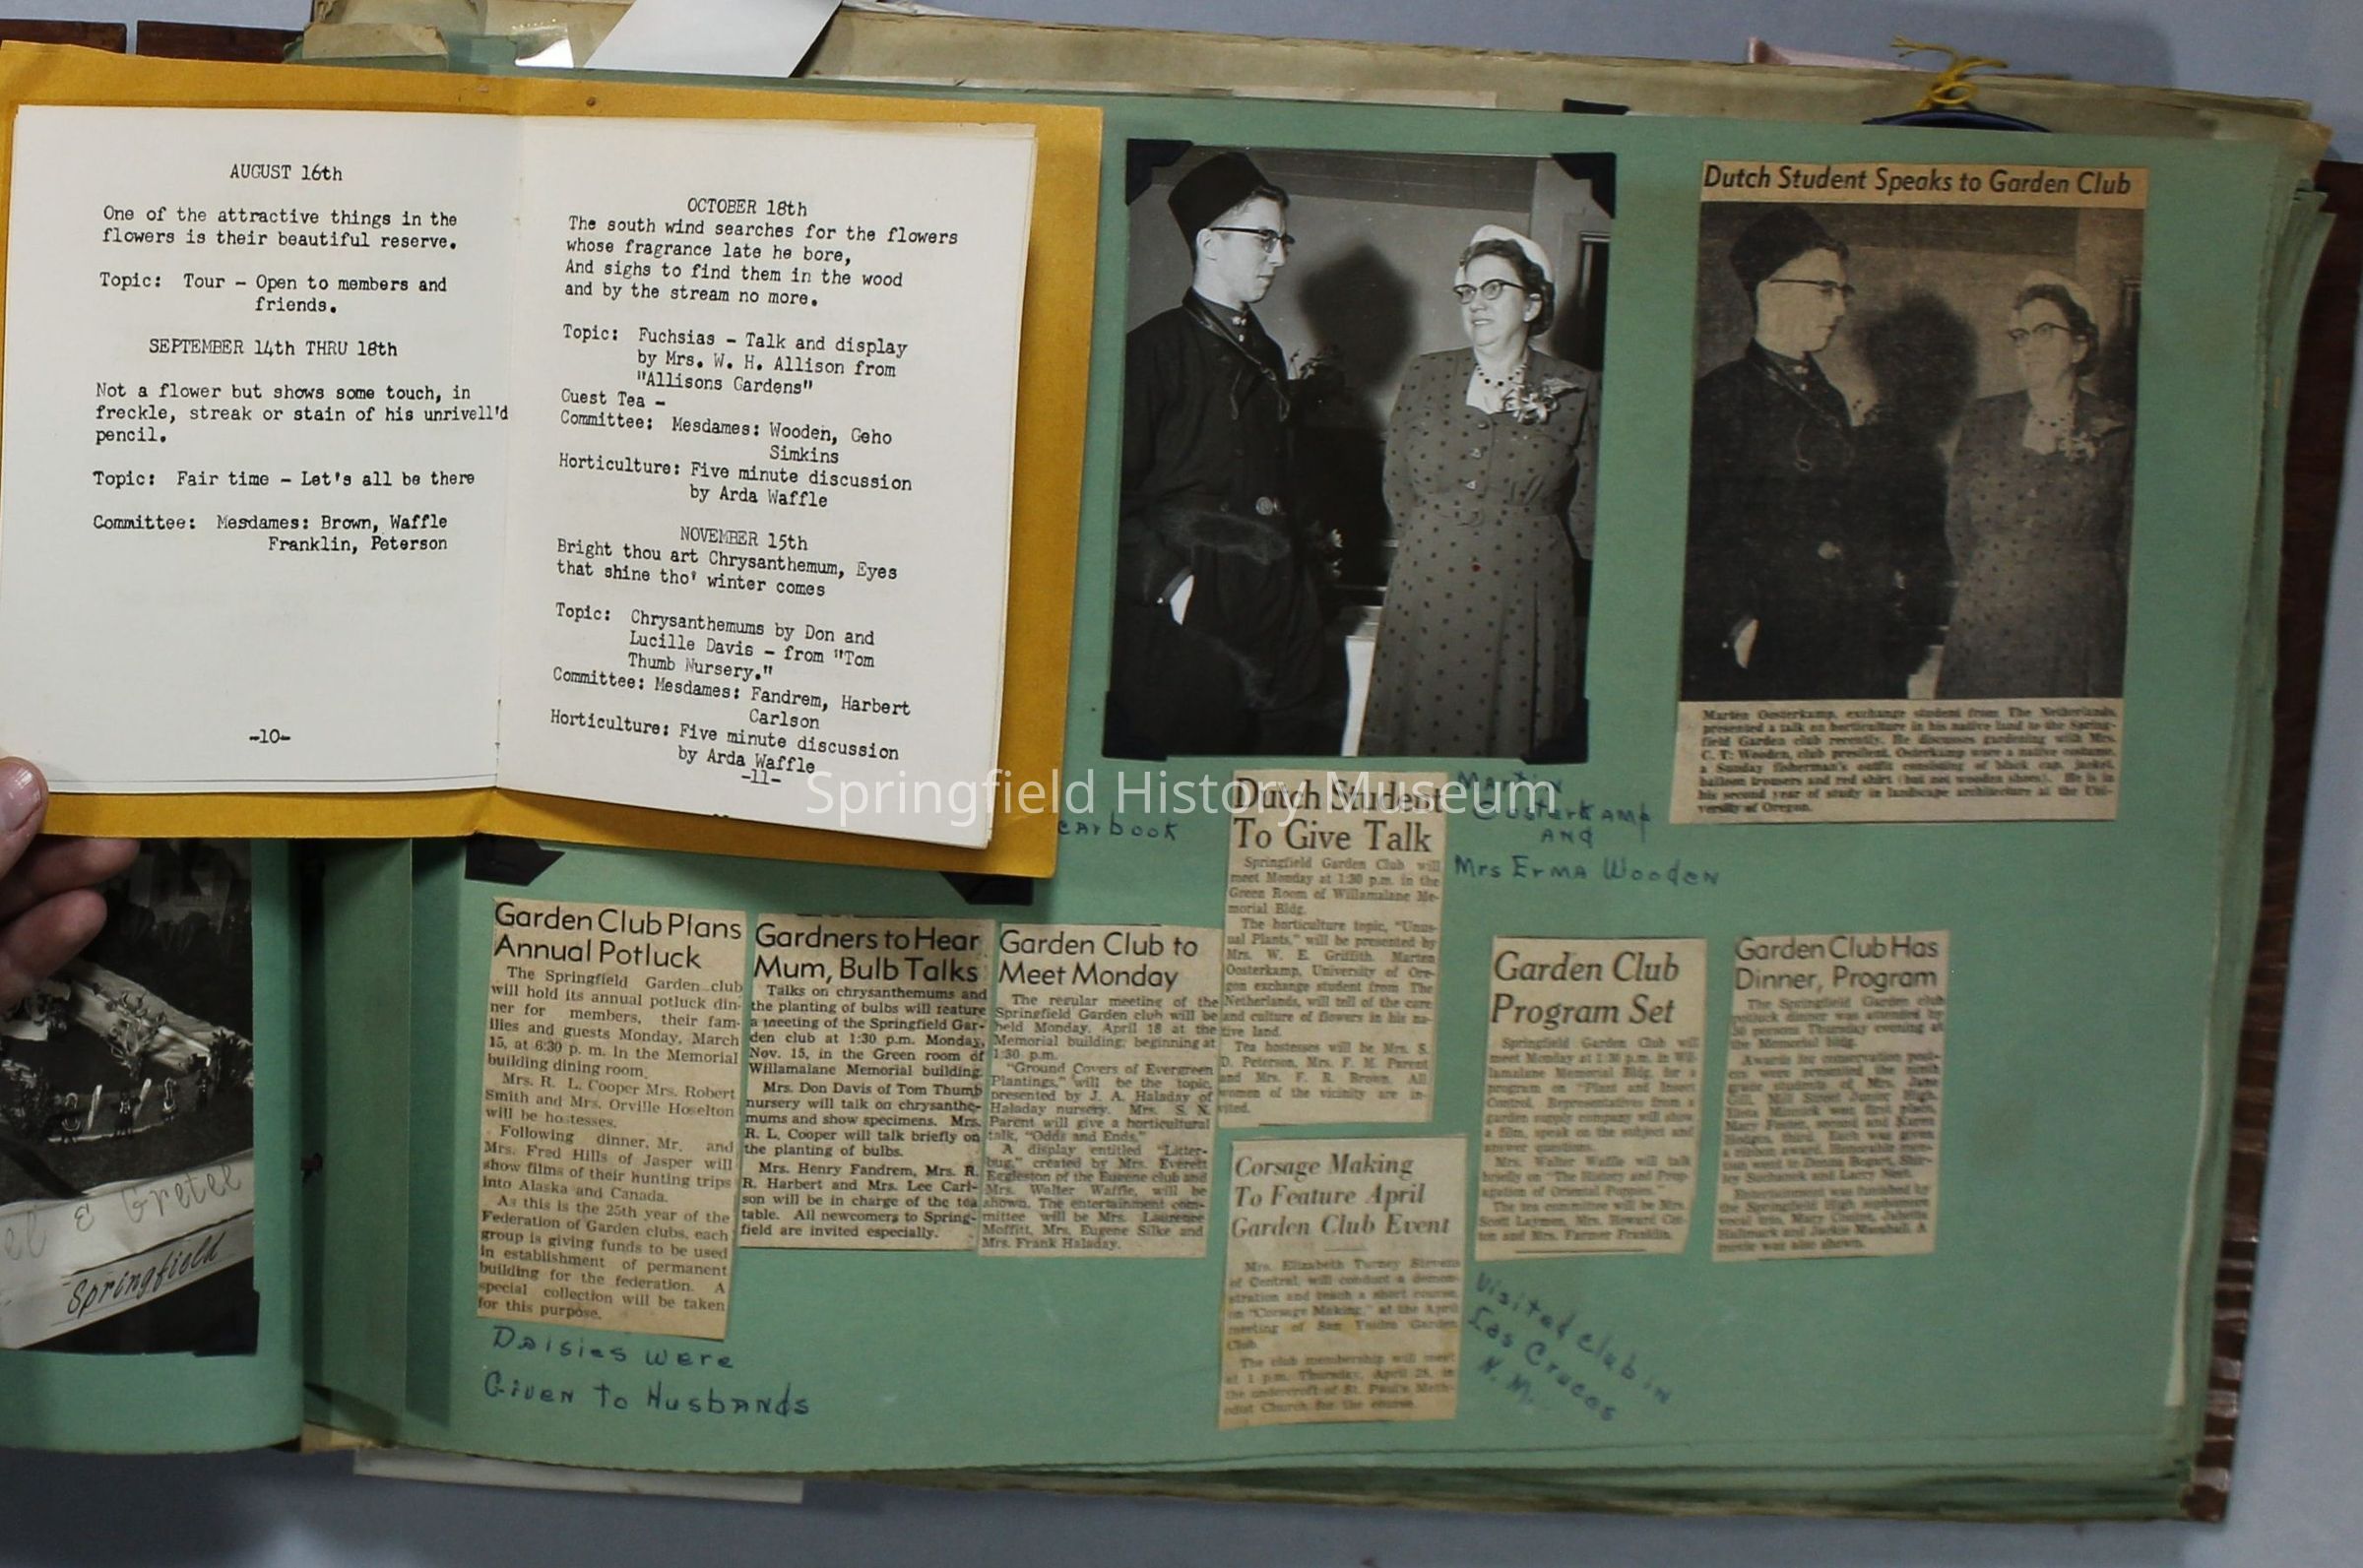 AUGUST 16th
One of the attractive things in the
flowers is their beautiful reserve.
Topic: Tour - Open to members and
friends.
SEPTEMBER 14th THRU 18th
Not a flower but shows some touch, in
freckle, streak or stain of his unrivell'd
pencil.
Topic: Fair time - Let's all be there
Committee: Mesdames: Brown, Waffle
Franklin, Peterson
-10-
OCTOBER 18th
The south wind searches for the flowers
whose fragrance late he bore,
And sighs to find them in the wood
and by the stream no more.
Topic: Fuchsias - Talk and display
by Mrs. W. H. Allison from
"Allisons Gardens"
Guest Tea -
Committee: Mesdames: Wooden, Geho
Simkins
Horticulture: Five minute discussion
by Arda Waffle
NOVEMBER 15th
Bright thou art Chrysanthemum, Eyes
that shine tho' winter comes
Topic: Chrysanthemums by Don and
Lucille Davis - from "Tom
Thumb Nursery."
Committee: Mesdames: Fandrem, Harbert
Carlson
Horticulture: Five minute discussion
by Arda Waffle
-11-
Dutch Student Speaks to Garden Club
Marten Oosterkamp, exchange student from The Netherlands,
presented a talk on horticulture in his native land to the Spring-
field Garden club recently. He discusses gardening with Mrs.
C. T. Wooden, club president. Osterkamp wore a native costume,
a Sunday fisherman's outfit consisting of black cap, jacket,
balloon trousers and red shirt (but not wooden shoes). He is in
his second year of study in landscape architecture at the Uni-
versity of Oregon.
Springfield History Museum
earbook
Martin
Ousterkamp
and
Mrs Erma Wooden
Dutch Student
To Give Talk
Springfield Garden Club will
meet Monday at 1:30 p.m. in the
Green Room of Willamalane Me-
morial Bldg.
The horticulture topic, "Unus-
ual Plants," will be presented by
Mrs. W. E. Griffith. Marten
Oosterkamp, University of Ore-
gon exchange student from The
Netherlands, will tell of the care
and culture of flowers in his na-
tive land.
Tea hostesses will be Mrs. S.
D. Peterson, Mrs. F. M. Parent
and Mrs. F. R. Brown. All
women of the vicinity are in-
vited.
Garden Club Plans
Annual Potluck
The Springfield Garden club
will hold its annual potluck din-
ner for members, their fam-
ilies and guests Monday, March
15, at 6:30 p. m. in the Memorial
building dining room.
Mrs. R. L. Cooper Mrs. Robert
Smith and Mrs. Orville Hoselton
will be hostesses.
Following dinner, Mr. and
Mrs. Fred Hills of Jasper will
show films of their hunting trips
into Alaska and Canada.
As this is the 25th year of the
Federation of Garden clubs, each
group is giving funds to be used
in establishment of permanent
building for the federation. A
special collection will be taken
for this purpose.
Daisies were
Given to Husbands
Gardners to Hear
Mum, Bulb Talks
Talks on chrysanthemums and
the planting of bulbs will feature
a meeting of the Springfield Gar-
den club at 1:30 p.m. Monday,
Nov. 15, in the Green room of
Willamalane Memorial building.
Mrs. Don Davis of Tom Thumb
nursery will talk on chrysanthe-
mums and show specimens. Mrs.
R. L. Cooper will talk briefly on
the planting of bulbs.
Mrs. Henry Fandrem, Mrs. R.
R. Harbert and Mrs. Lee Carl-
son will be in charge of the tea
table. All newcomers to Spring-
field are invited especially.
Garden Club to
Meet Monday
The regular meeting of the
Springfield Garden club will be
held Monday, April 18 at the
Memorial building, beginning at
1:30 p.m.
"Ground Covers of Evergreen
Plantings," will be the topic,
presented by J. A. Haladay of
Haladay nursery. Mrs. S. N.
Parent will give a horticultural
talk, "Odds and Ends."
A display entitled "Litter-
bug," created by Mrs. Everett
Eggleston of the Eugene club and
Mrs. Walter Waffle, will be
shown. The entertainment com-
mittee will be Mrs. Laurence
Moffitt, Mrs. Eugene Silke and
Mrs. Frank Haladay.
Corsage Making
To Feature April
Garden Club Event
Mrs. Elizabeth Turney Stevens
of Central, will conduct a demon-
stration and teach a short course
on "Corsage Making," at the April
meeting of San Garden
Club.
The club membership will meet
at 1 p.m. Thursday, April 28, in
the undercroft of St. Paul's Meth-
odist Church for the course.
Visited club in
Las Cruces
N. M.
Garden Club
Program Set
Springfield Garden Club will
meet Monday at 1:30 p.m. in Wil-
lamalane Memorial Bldg. for a
program on "Plant and Insect
Control. Representatives from a
garden supply company will show
a film, speak on the subject and
answer questions.
Mrs. Walter Waffle will talk
briefly on "The History and Prop-
agation of Oriental Poppies."
The tea committee will be Mrs.
Scott Laymen, Mrs. Howard
and Mrs. Farmer Franklin.
Garden Club Has
Dinner, Program
The Springfield Garden club
potluck dinner was attended by
persons Thursday evening at
the Memorial bldg.
Awards for conservation
were presented the ninth
grade students of Mrs. June
Gill, Mill Street Junior High.
was first place,
Mary Foster, second and Karen
Hodges, third. Each was given
a ribbon award. Honorable men-
tion went to Donna Bogart,
and Larry
Entertainment was furnished by
the Springfield High sophomore
vocal trio, Mary
and Jackie Marshall. A
movie was also shown.
el & Gretel
Springfield